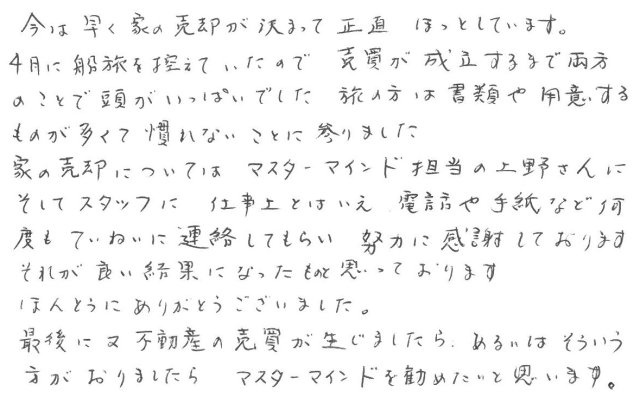 今は早く家の売却が決まって正直 ほっとしています。
4月に船旅を控えていたので 売買が成立するまで両方
のことで頭がいっぱいでした 旅の方は書類や用意する
ものが多くて慣れないことに参りました
家の売却については マスターマインド担当の上野さんに
そしてスタッフに 仕事上とはいえ 電話や手紙など何
度もていねいに連絡してもらい 努力に感謝しております
それが良い結果になったものと思っております
ほんとうにありがとうございました。
最後に又不動産の売買が生じましたら、あるいはそういう
方がおりましたら マスターマインドを勧めたいと思います。